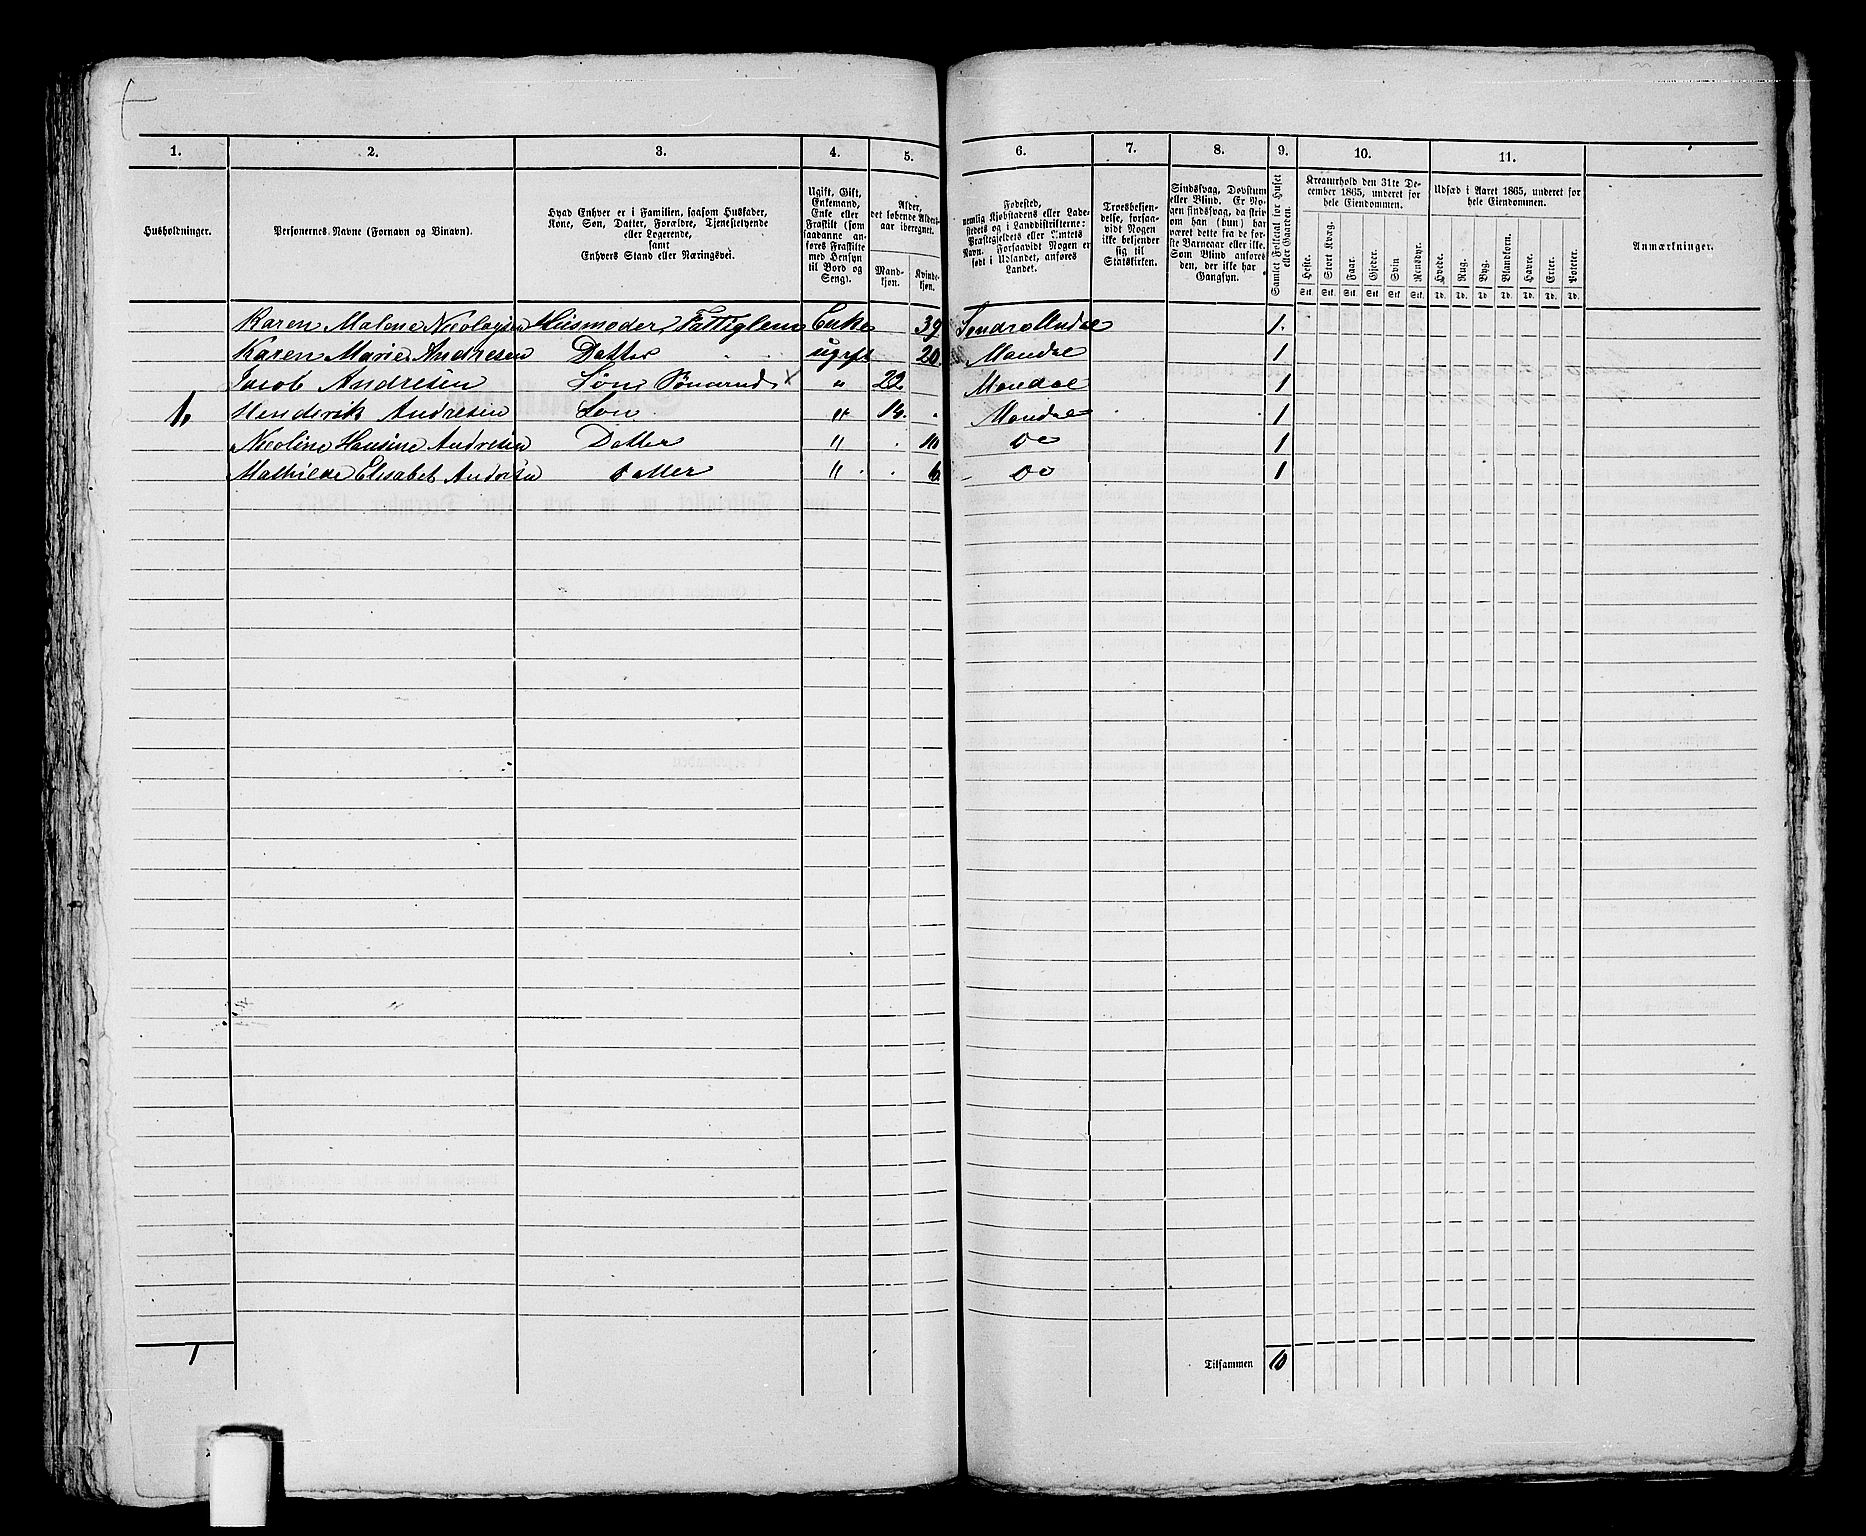 1. 2. 3. 4. 5. 6. 7. 8. 9. 10. 11.
Husholdninger.
Personernes Navne (Fornavn og Binavn).
Hvad Enhver er i Familien, saasom Husfader,
Kone, Søn, Datter, Forældre, Tjenestetyende
eller Logerende,
samt
Enhvers Stand eller Næringsvei.
Ugift, Gift,
Enkemand,
Enke eller
Fraskilt (som
saadanne an-
føres Fraskilte
med Hensyn
til Bord og
Seng).
Alder,
det løbende Alders-
aar iberegnet.
Mand-
kjøn.
Kvinde-
kjøn.
Fødested,
nemlig Kjøbstadens eller Lade-
stedets og i Landdistrikterne:
Præstegjeldets eller Amtets
Navn. Forsaavidt Nogen er
født i Udlandet, anføres
Landet.
Troesbekjen-
delse, forsaa-
vidt Nogen
ikke bekjender
sig til
Statskirken.
Sindssvag, Døvstum
eller Blind. Er No-
gen sindssvag, da skriv
om han (hun) har
været dette fra de før-
ste Barneaar eller ikke.
Som Blind anføres
den, der ikke har
Gangsyn.
Samlet Folketal for Huset
eller Gaarden.
Kreaturhold den 31te De-
cember 1865, underet for
hele Eiendommen.
Heste. Stort Kvæg. Faar. Gjeder. Svin Rensdyr.
Stk. Stk. Stk. Stk. Stk. Stk.
Udsæd i Aaret 1865, underet for
hele Eiendommen.
Hvede. Rug. Byg. Blandkorn. Havre. Erter. Poteter.
Td. Td. Td. Td. Td. Td. Td.
Anmærkninger.
Karen Malene Nicolaysen Huusmoder, Fattiglem Enke 39 Søndre Undal 1.
Karen Marie Andresen Datter ugift 20. Mandal 1
Jacob Andresen Søn, Sømand x " 22. Mandal 1
1. Henderik Andresen Søn " 14. Mandal 1
Nicoline Hansine Andresen Datter " 10 Do 1
Mathilde Elisabet Andresen Datter " 6. Do 1
1
Tilsammen 10